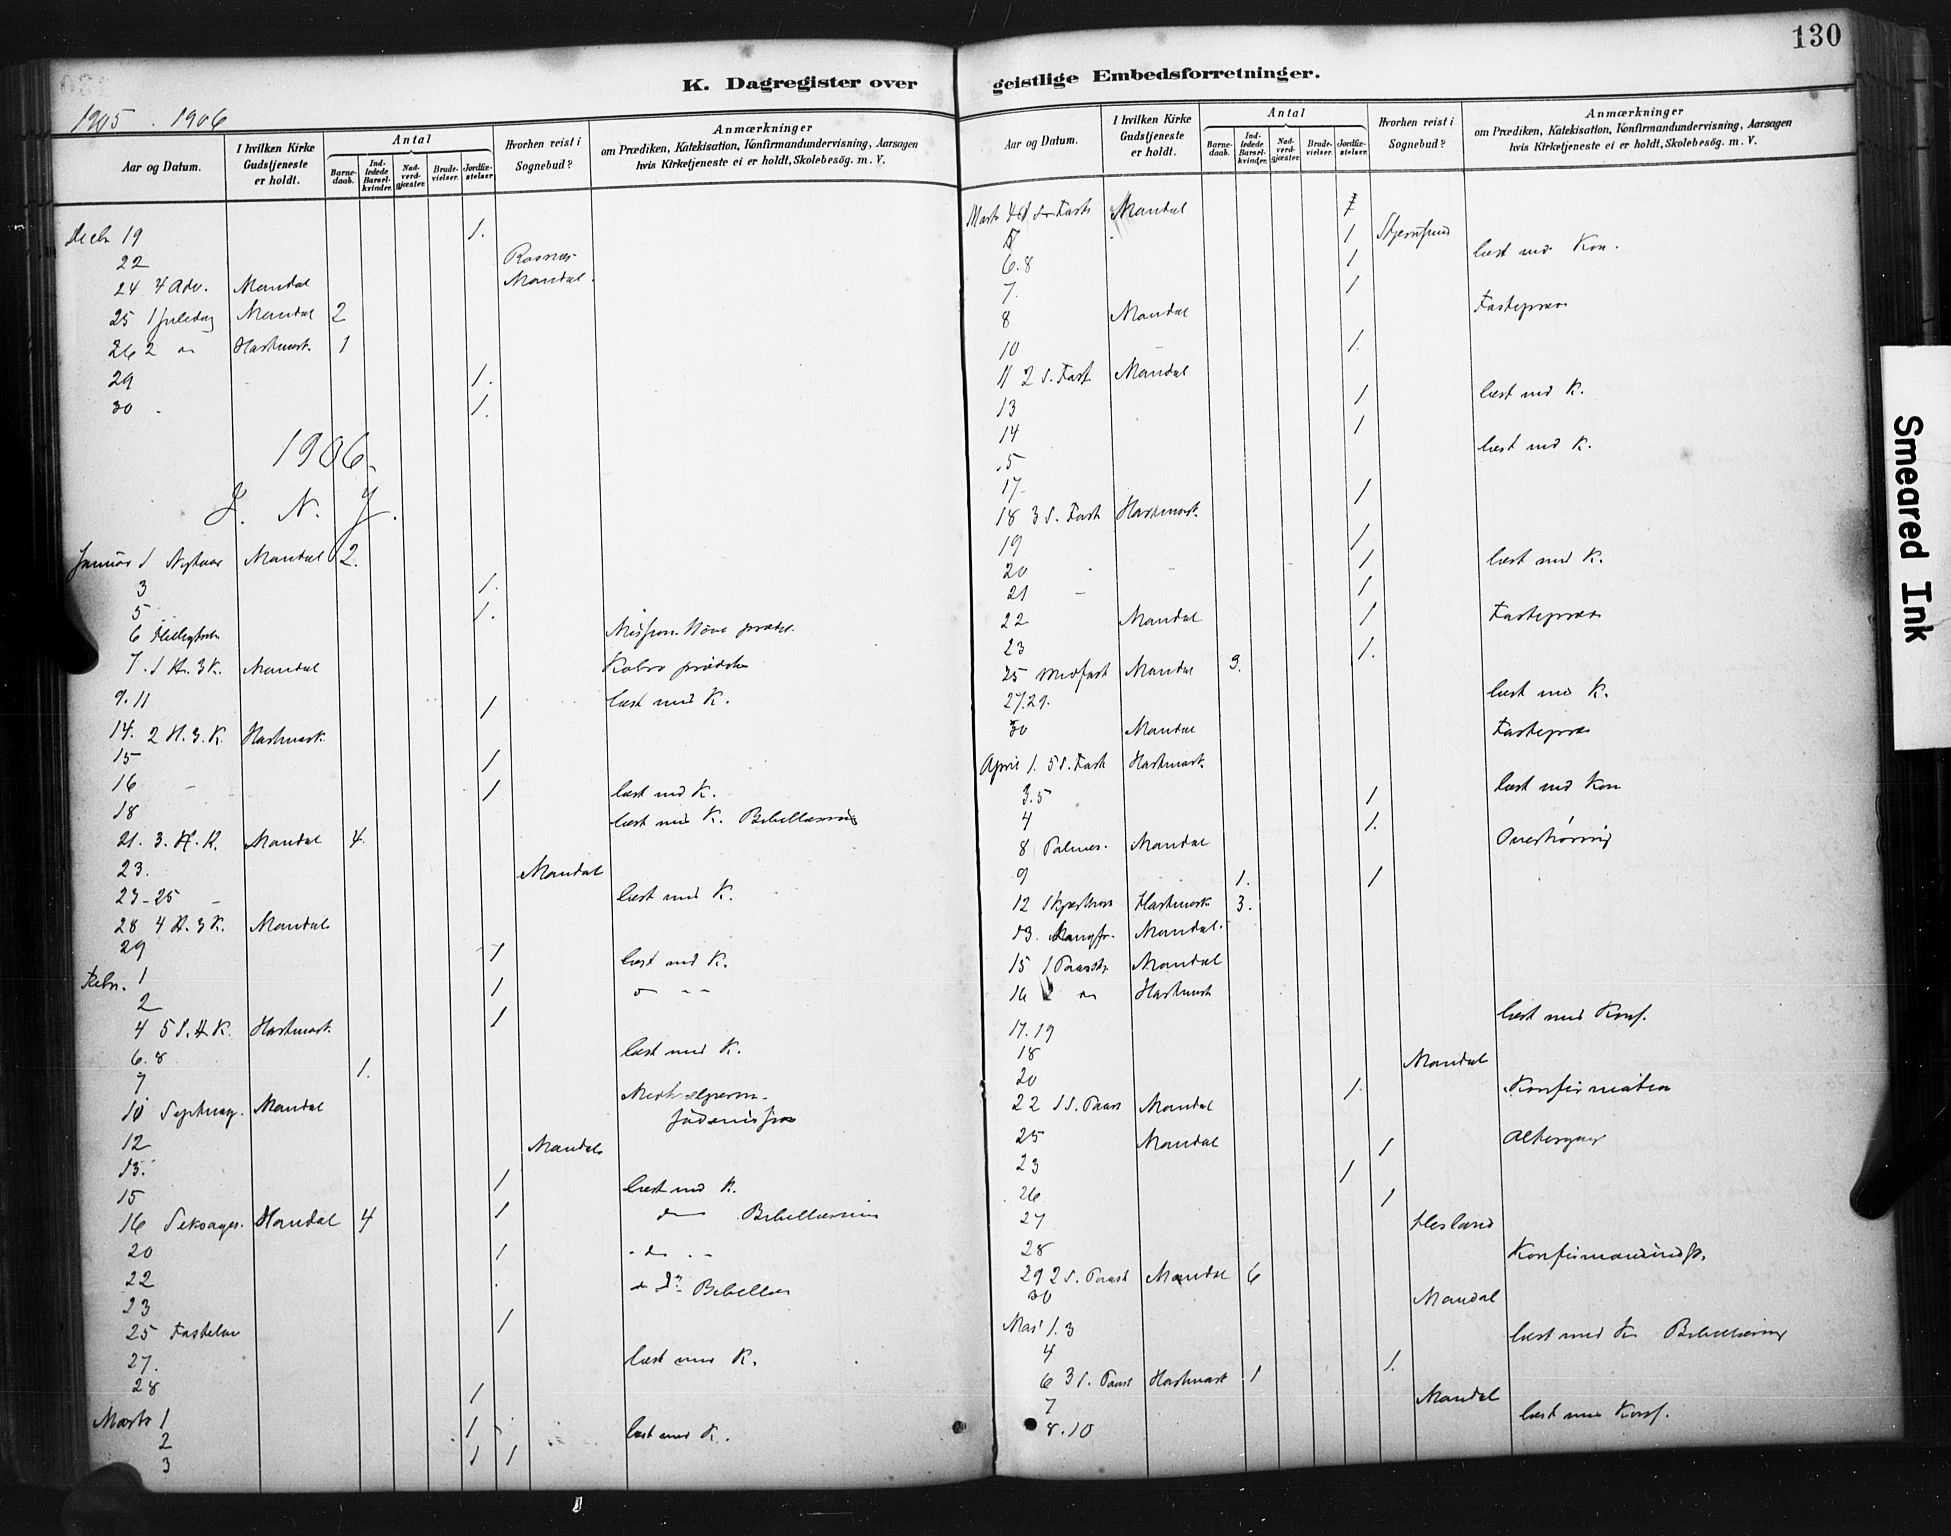 130
K. Dagregister over
geistlige Embedsforretninger.
1905 . 1906
Aar og Datum. I hvilken Kirke Gudstjeneste er holdt. Antal Barnedaab. Indledede Barselkvinder. Nadverdgjæster. Brudevielser. Jordfæstelser. Hvorhen reist i Sognebud? Anmærkninger om Prædiken, Katekisation, Konfirmandundervisning, Aarsagen hvis Kirketjeneste ei er holdt, Skolebesøg. m. V.
Decbr 19 1.
22 Rosnes
24 4 Adv. Mandal Mandal.
25 1 Juledag Mandal 2
26 2 Hartmark 1
29 1.
30 1.
1906
J. N. J.
Januar 1 Nytaar Mandal 2.
3 1.
5 1.
6
7. S. H. 3 K. Mandal
9. 11 1 læst med K.
14. 2 H. 3. K. Hartmark
15 1
16 1 læst med K.
18 læst med K. Bibellæsning
21. 3. H. K. Mandal 4.
23. Mandal
23-25 læst med K.
28 4 H. 3 K. Mandal
29 1 læst med K.
Febr. 1 1
2 1
4 5 S. H. K. Hartmark
6. 8 1. læst med K.
7
10 Septuag. Mandal
12 Mandal
13.
15 1 læst med K.
16 Seksages. Mandal 4 1 do Bibellæsning
20 1 do
22 do
23
25 Fastelav 1
27. læst med K.
28 1
Marts 1 1 læst med K.
2 1 1
3
Aar og Datum. I hvilken Kirke Gudstjeneste er holdt. Antal Barnedaab. Indledede Barselkvinder. Nadverdgjæster. Brudevielser. Jordfæstelser. Hvorhen reist i Sognebud? Anmærkninger om Prædiken, Katekisation, Konfirmandundervisning, Aarsagen hvis Kirketjeneste ei er holdt, Skolebesøg. m. V.
Marts 4 Mandal
5 1 Stjernsund
6. 8 1 læst med Kon.
7. 1
8 Mandal
10 1.
11 2 S. Fast Mandal
13 1 læst med K.
14 1
15 læst med K.
17 1
18 3 S. Fast Hartmark
19 1
20 1 læst med K.
21 1
22 Mandal 1
23 1.
25 Midfast Mandal 3.
27. 29. læst med K.
30 Mandal
April 1. 5 S. Fast Hartmark
3. 5 1 læst med Kon
4 1.
8 Palmes. Mandal Overhøring
9 1. 1
12 Skjærtors Hartmark 3.
13. Langfr. Mandal.
15 1 Paaske Mandal
16 2 Hartmark
17. 19 læst med Konf.
18 Mandal
20 1.
22 1 S. Paas Mandal Konfirmation
25 Mandal 1 Altergang
23 1
26 1
27 Hesland
28
29 2 S. Paask Mandal 6
30 Mandal
Mai 1. 3 læst med K Bibellæsning
4 1.
6 3 S. Paas Hartmark 1
7 Mandal
8. 10 læst med Konf.
Smeared Ink